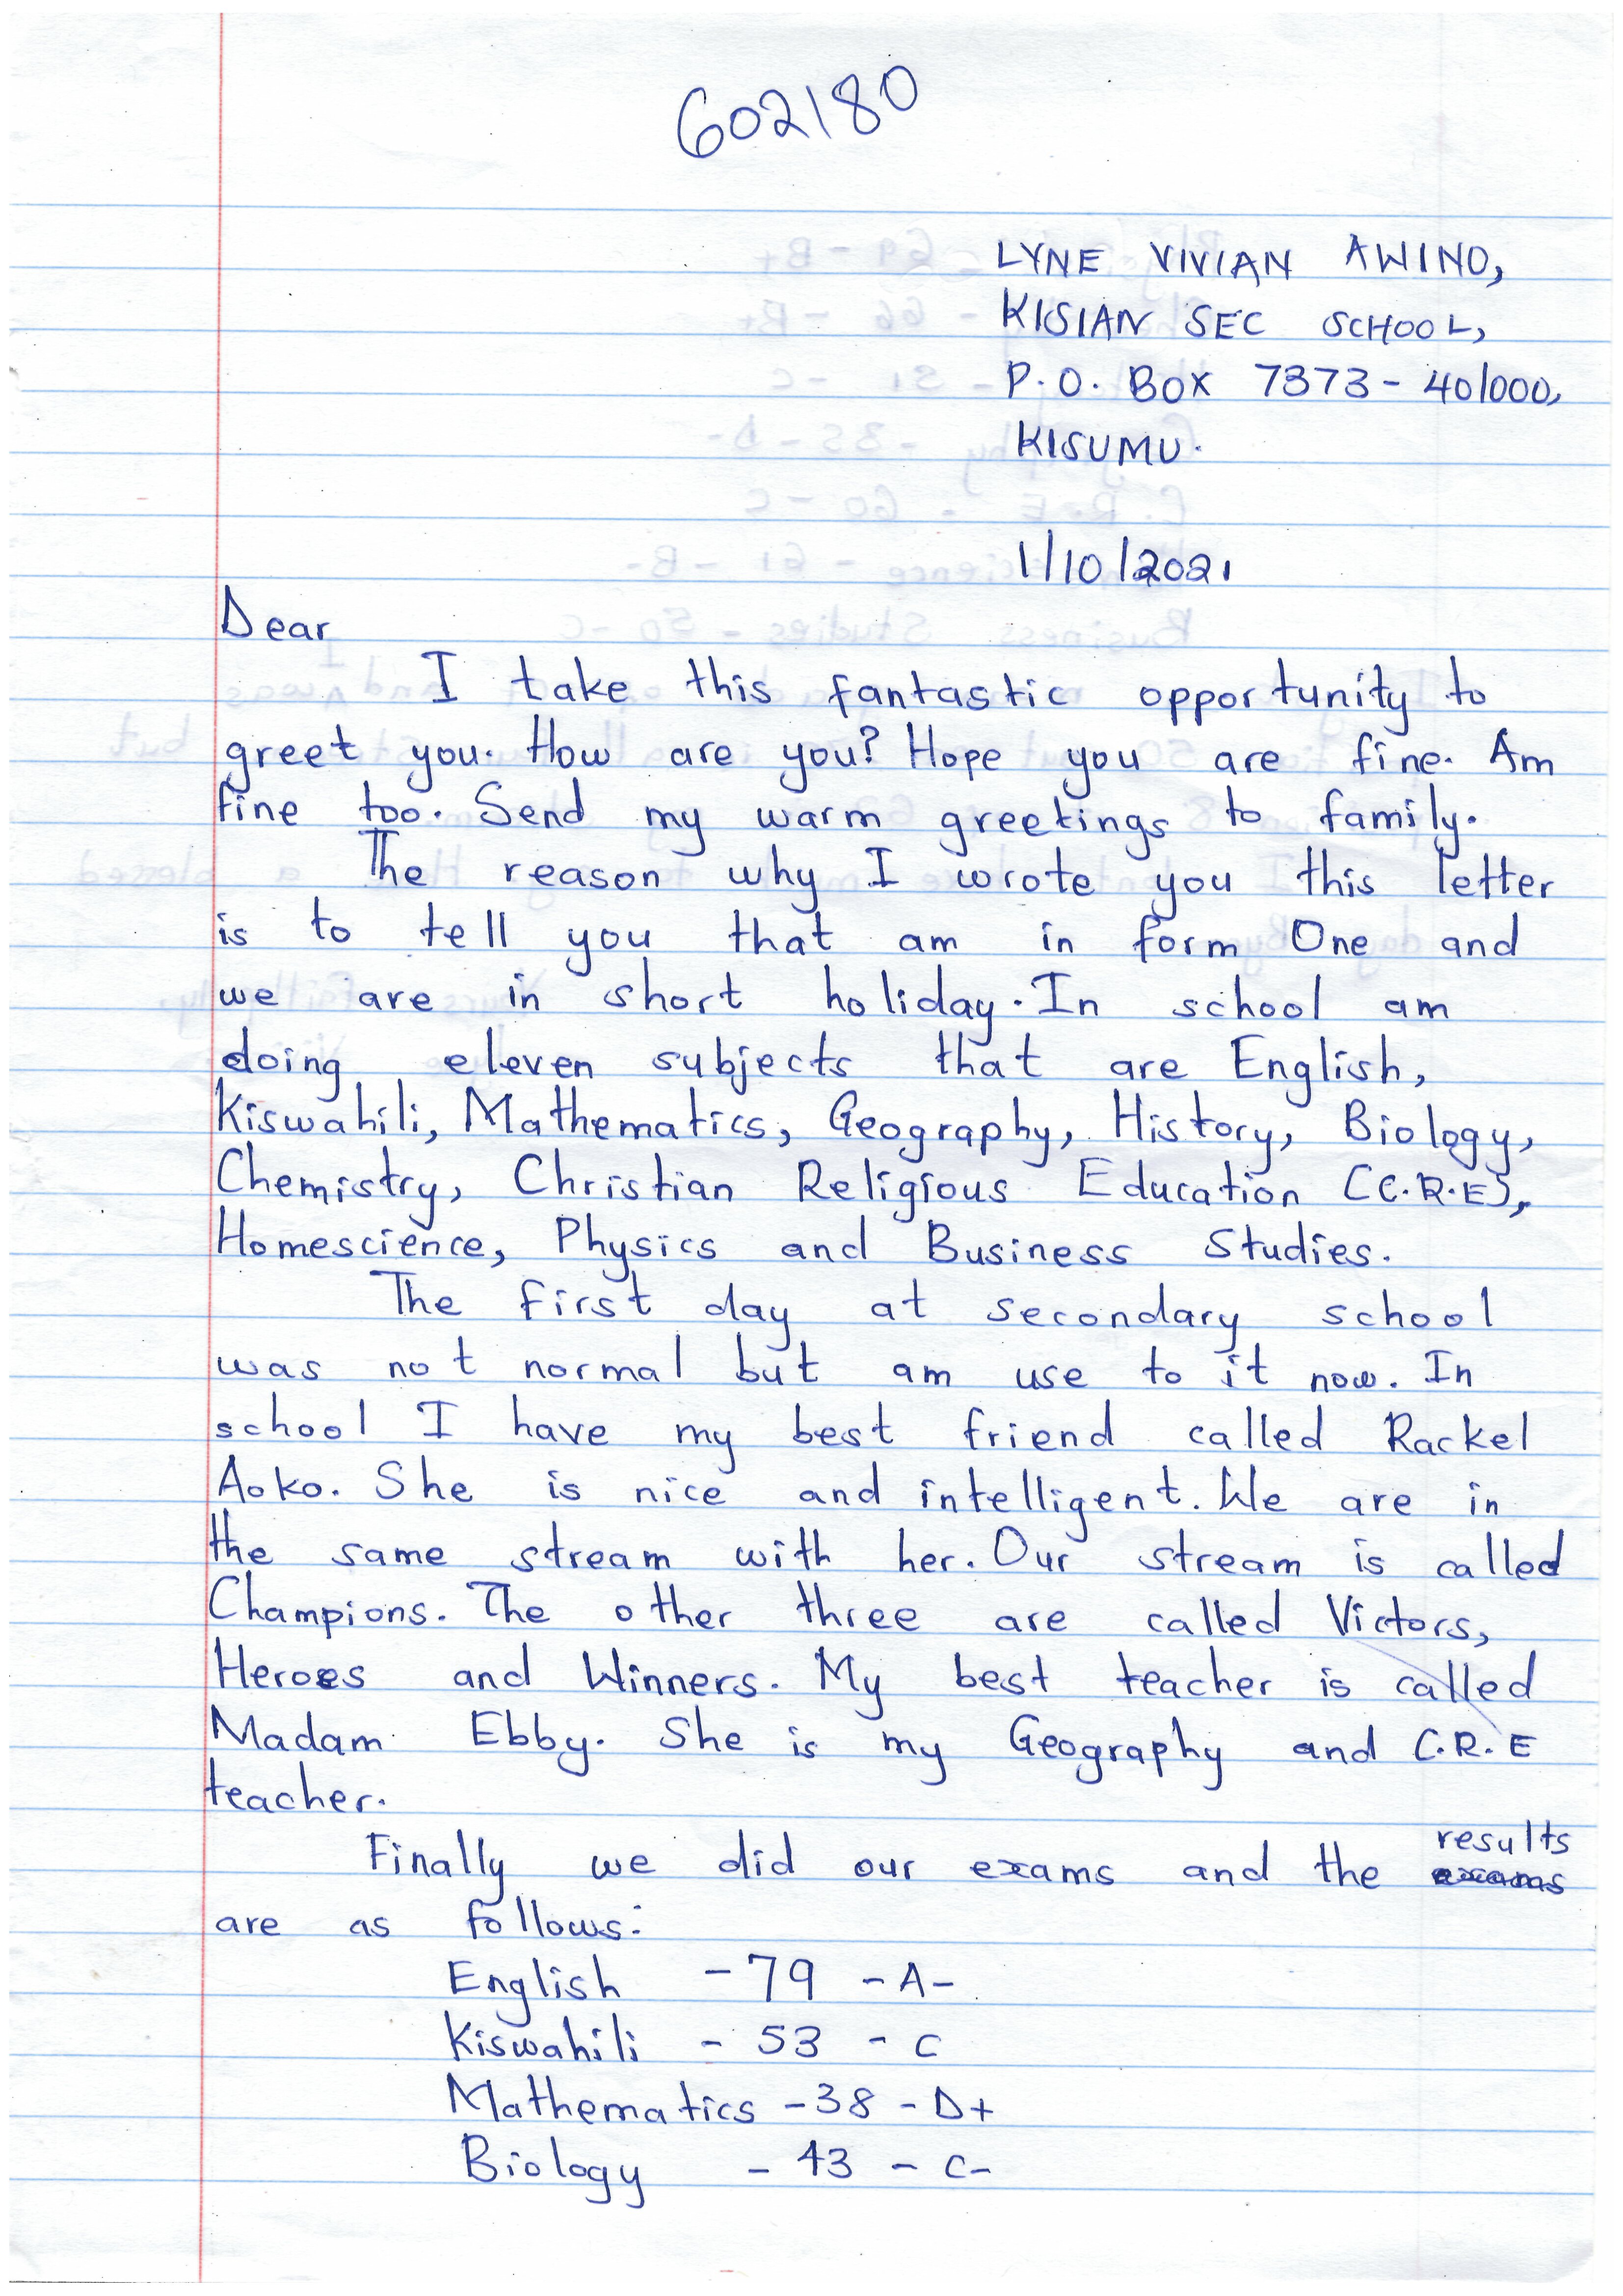 602180
LYNE VIVIAN AWINO,
KISIAN SEC SCHOOL,
P.O. BOX 7373 - 40/000,
KISUMU.
1/10/2021
Dear
I take this fantastic opportunity to
greet you. How are you? Hope you are fine. Am
fine too. Send my warm greetings to family.
The reason why I wrote you this letter
is to tell you that am in form One and
we are in short holiday. In school am
doing eleven subjects that are English,
Kiswahili, Mathematics, Geography, History, Biology,
Chemistry, Christian Religious Education (C.R.E),
Homescience, Physics and Business Studies.
The first day at secondary school
was not normal but am use to it now. In
school I have my best friend called Rackel
Aoko. She is nice and intelligent. We are in
the same stream with her. Our stream is called
Champions. The other three are called Victors,
Heroes and Winners. My best teacher is called
Madam Ebby. She is my Geography and C.R.E
teacher.
Finally we did our exams and the results
are as follows:
English - 79 - A-
Kiswahili - 53 - C
Mathematics - 38 - D+
Biology - 43 - C-